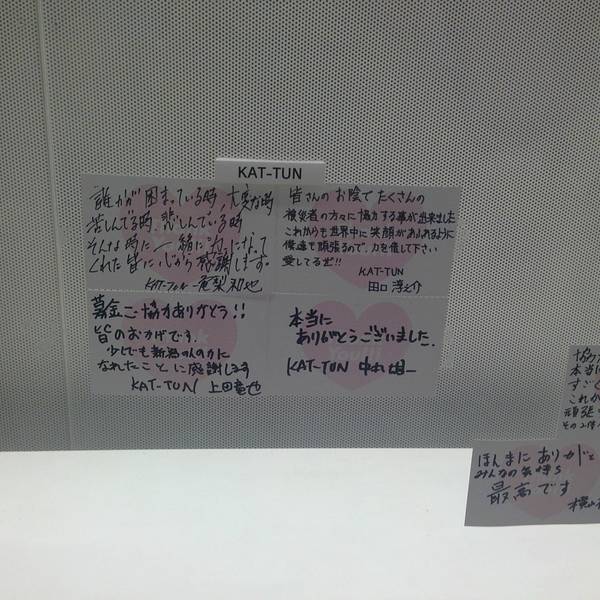 KAT-TUN
誰かが困まっている時、大変な時
苦しんでる時、悲しんでいる時
そんな時に一緒に力になって
くれた皆に心から感謝します。
KAT-TUN 亀梨和也
皆さんのお陰でたくさんの
被災者の方々に協力する事が出来ました
これからも世界中に笑顔があふれるように
俺達も頑張るので、力を貸して下さい
愛してるぜ!!
KAT-TUN
田口淳之介
募金ご協力ありがとう!!
皆のおかげです。
少しでも新潟の人の力に
なれたことに感謝します
KAT-TUN 上田竜也
本当に
ありがとうございました。
KAT-TUN 中丸雄一
協力
本当に
すごく
これか
頑張
その2倍
ほんまにありがと
みんなの気持ち
最高です
横山